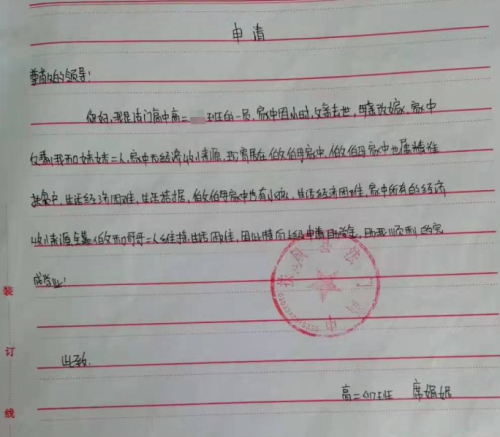 申请
尊敬的领导:
您好,我是法门高中高二 班的一员,家中因小时,父亲去世,母亲改嫁,家中
仅剩我和妹妹二人,家中无经济收入来源,现寄居在伯父伯母家中,伯父伯母家中也属精准
扶贫户,生活经济困难,生活拮据,伯父伯母家中也有小孩,生活经济困难,家中所有的经济
收入来源全靠伯父和哥哥二人维持生活困难,因此特向上级申请助学金,助我顺利的完
成学业!
此致.
高二 班 席娟妮
装
订
线